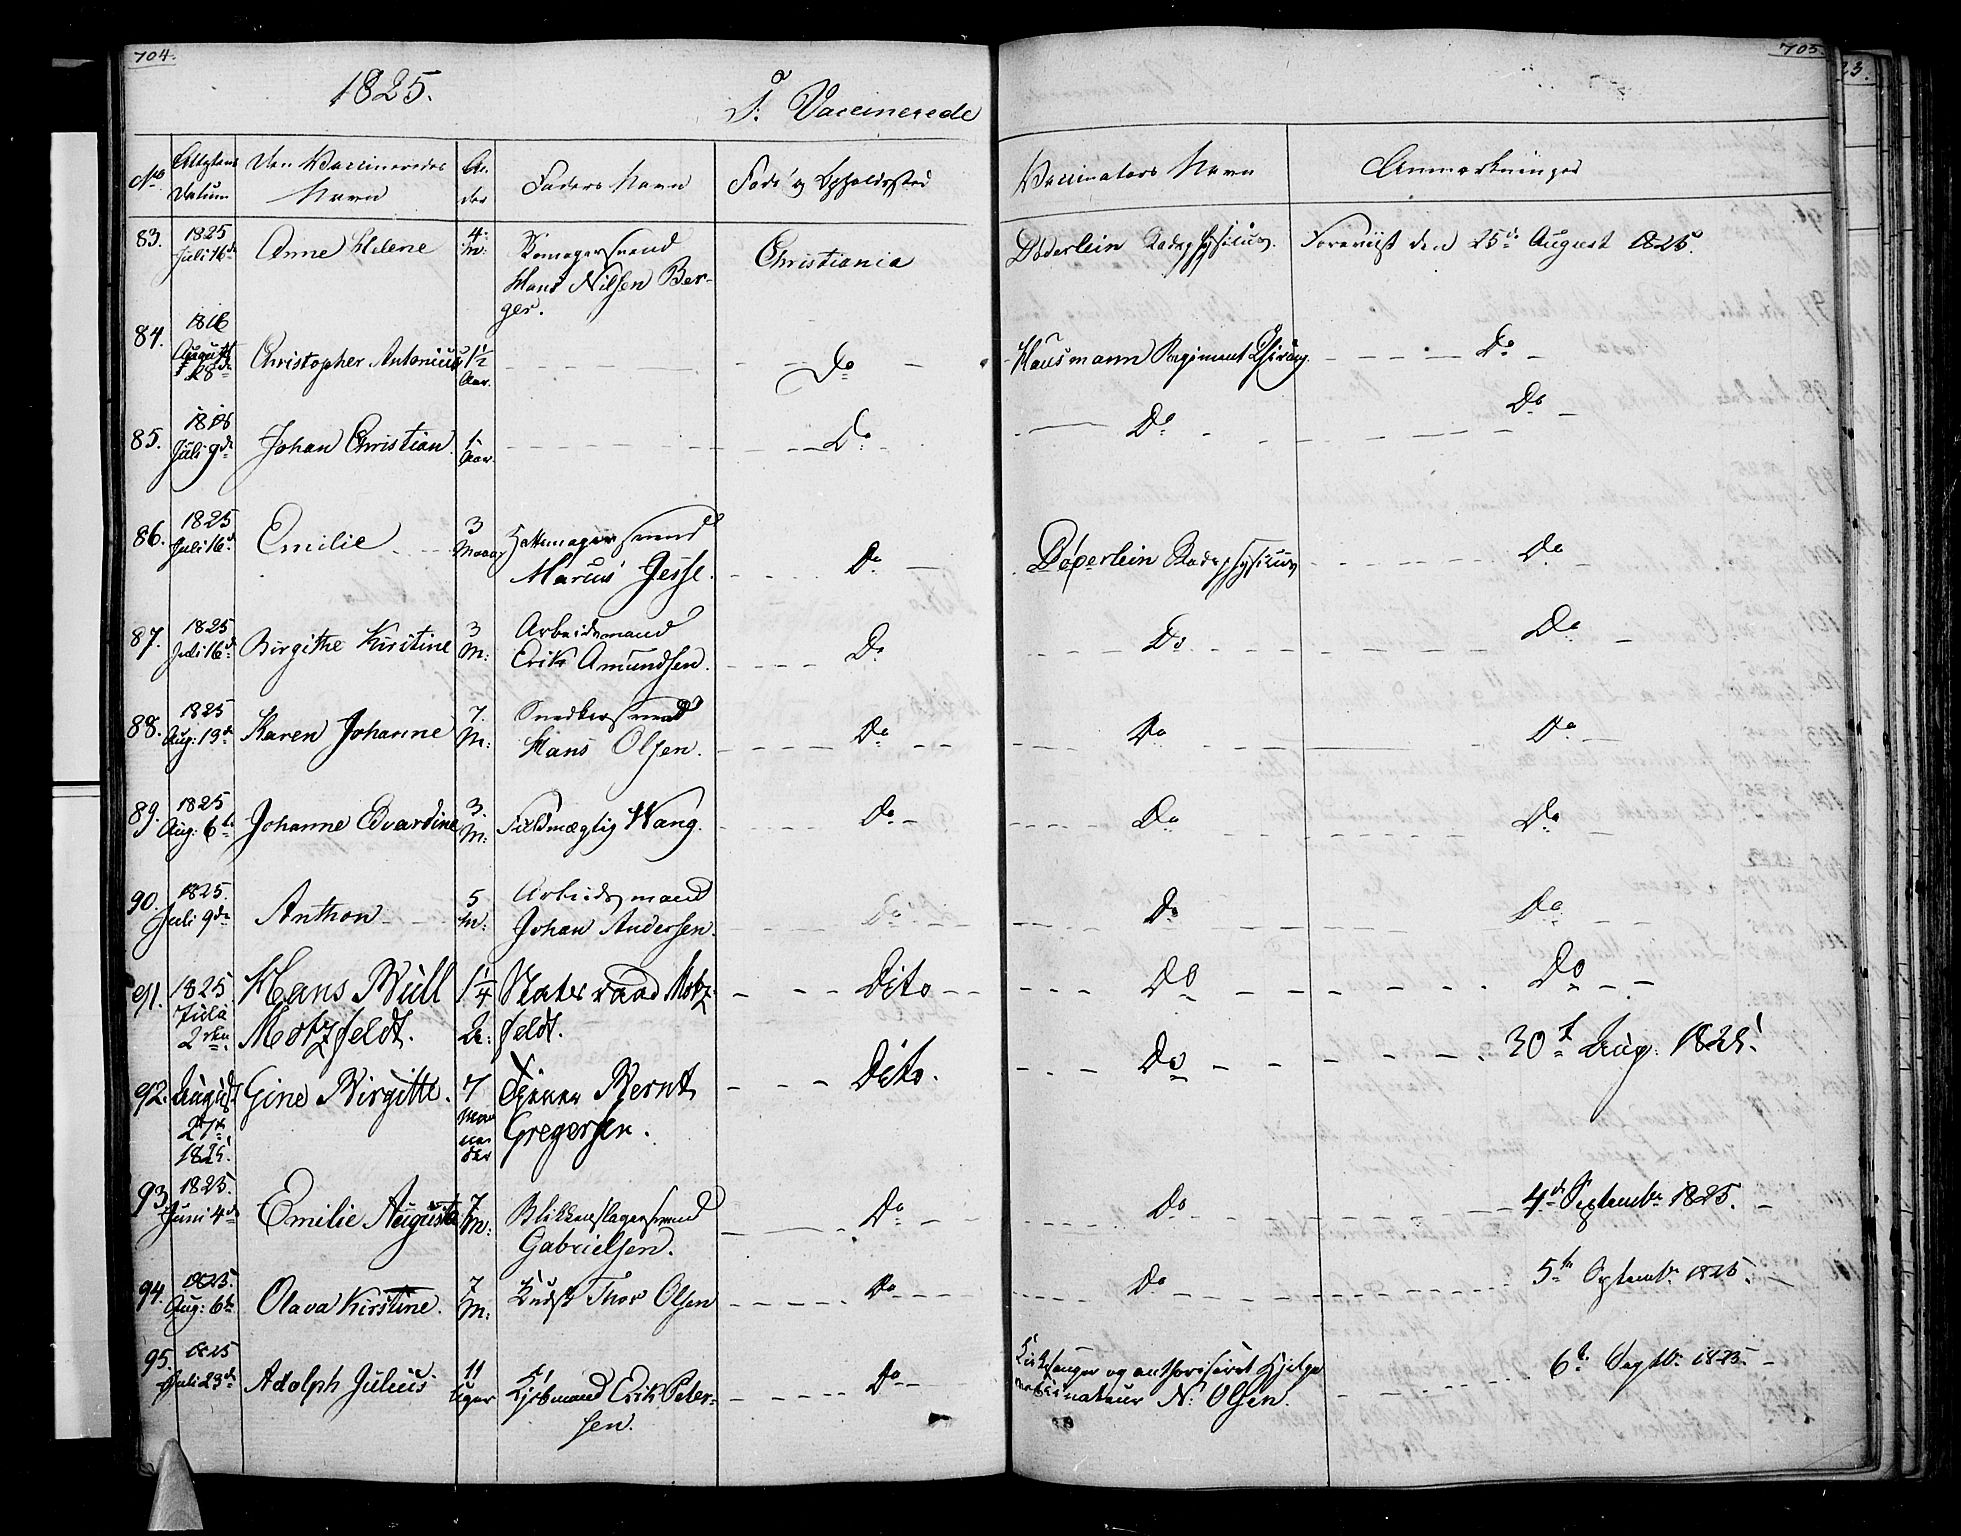 704.
1825.
F: Vaccinerede
705.
23.
No Attestens Datum
Den Vaccineredes Navn
Alder
Faders Navn
Føde og Opholdssted
Vaccinators Navn
Anmærkninger
83. 1825 Juli 16de Anne Helene 4 M: svend Hans Nilsen Berger. Christiania Døderlein Radsphysicus. Foreviist den 25de August 1825.
84. 1816 August 28de Christopher Antonius 1½ Aar. Do Hausmann Regiment Chirurg. Do
85. Juli 9de Johan Christian. 1 Aar. Do Do Do
86. 1825 Juli 16de Emilie 3 Hattemagersvend Marcus Jesse. Do Døderlein Radsphysicus Do
87. 1825 Juli 16de Birgithe Kirstine 3 M: Arbeidsmand Erik Amundsen. Do Do Do
88. 1825 Aug: 13de Karen Johanne 7. M: Snedkersvend Hans Olsen. Do Do Do
89. 1825 Aug: 6te Johanne Edvardine 3. M: Fuldmægtig Wang. Do Do Do
90. 1825. Juli 9de Anthon 5 M: Arbeidsmand Johan Andersen. Do Do Do
91. 1825 2den Hans Bull Motzfeldt. 1¼ A: Statsraad Motzfeldt. Dito Do Do
92. August 27de 1825. Gine Birgitte. 7 Maaneder Tjener Bernt Gregersen. Dito. Do 30te Aug: 1825.
93. 1825. Juni 4de Emilie Augusta 7 M: Blikkenslagersvend Gabrielsen. Do Do 4de Septembr 1825.
94. 1825. Aug: 6te Olava Kirstine. 7 M: Kudsk Thor Olsen Do Do 5te Septembr 1825.
95. 1825 Juli 23de Adolph Julius 11 Uger Kjøbmand Erik Petersen. Do Kirkesanger og authoriseret Hjelpevaccinateur N: Olsen. 6te Septbr 1825.